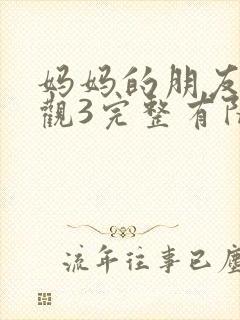 妈妈的朋友
觀3完整有
流年往事已